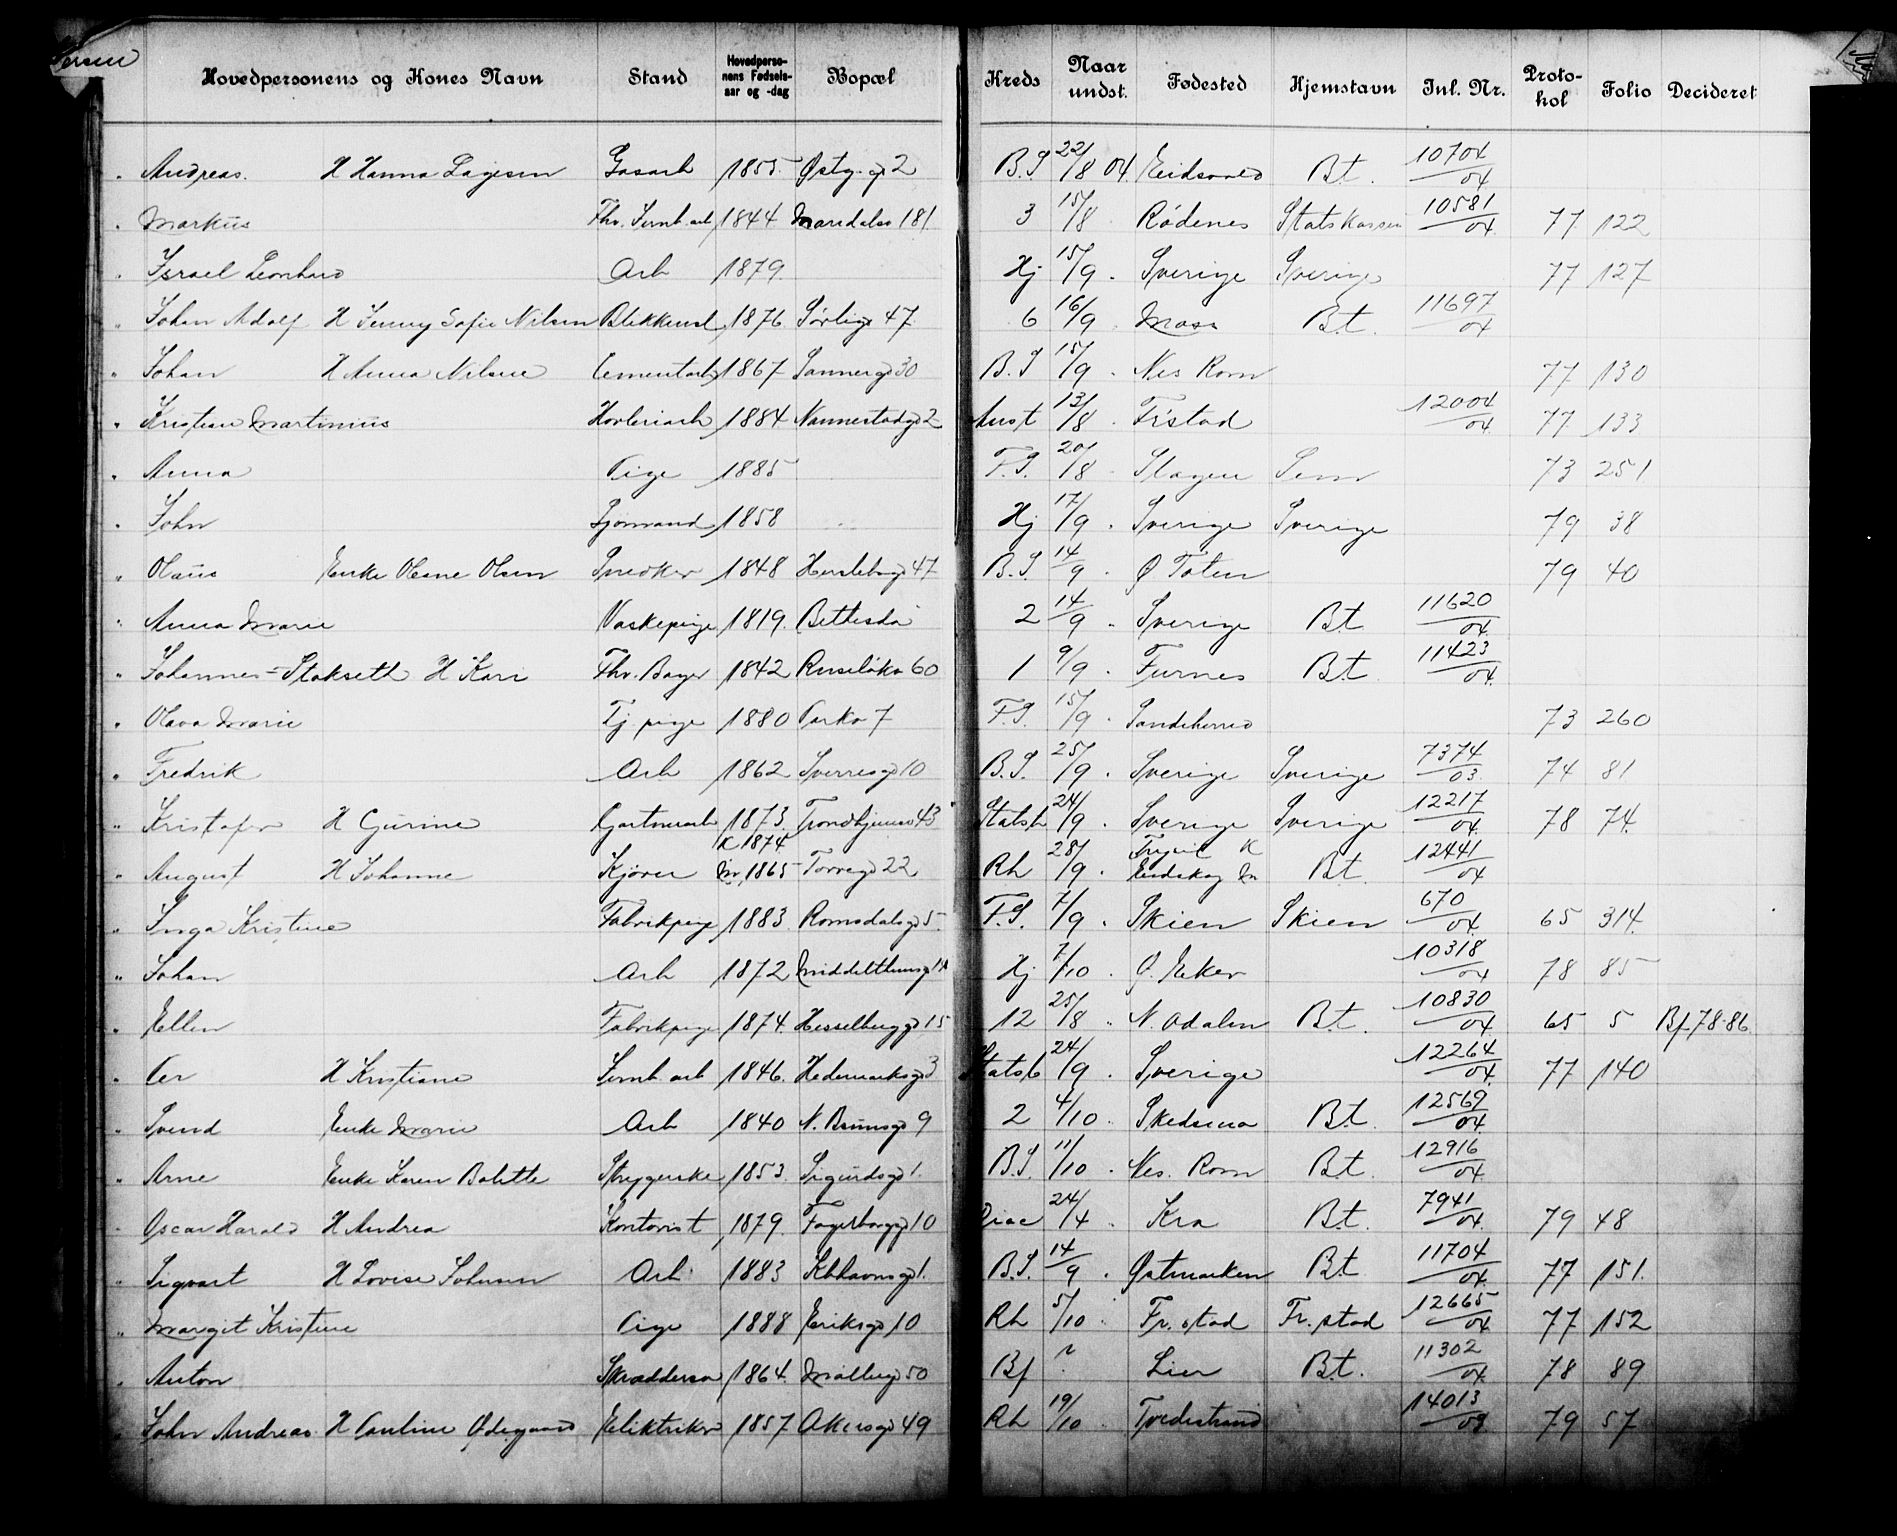 Hovedpersonens og Kones Navn Stand Hovedpersonens Fødselsaar og -dag Bopæl Kreds Naar undst. Fødested Hjemstavn Inl. Nr. Protokol Folio Decideret
" Andreas. H Hanna Lagesen Gasarb 1855 Østg. gd 2 B.S 22/8 04. Eidsvold Bt. 10704/04
" Markus Fhv. Jernb. arb 1844 Maridalsv 181 3 15/8 Rødenes Statskassen 10581/04 77 122
" Israel Leonhard Arb 1879. Hj 15/9 . Sverige Sverige 77 127
" Johan Adolf H Jenny Sofie Nilsen Blikkensl 1876 Sørligt 47 6 16/9 . Moss Bt. 11697/04
" Johan H Anna Nilsine Cementarb 1867 Sannergd 30 B.S 15/9 . Nes Rom 77 130
" Kristian Martinius Høvleriarb 1884 Nannestadgd 2 Aust 13/8 . F'stad 12004/04 77 133
" Anna Pige 1885 F.S. 20/8 . Slagen Sem 73 251
" John Sjømand 1858 Hj 17/9 . Sverige Sverige 79 38
" Olaus Enke Olene Olsen Snedker 1848 Herslebsgd 47 B.S. 14/9 . Ø Toten 79 40
" Anna Marie Vaskepige 1819. Bethesda 2 14/9 . Sverige Bt 11620/04
" Johannes = Stokseth H Kari Fhv. Bager 1842 Ruseløkv 60 1 9/9 . Furnes Bt 11423/04.
" Olava Marie Tj. pige 1880 Parkv 7 F.S. 15/9 . Sandeherred 73 260
" Fredrik Arb 1862 Sverresgd 10 B.S. 25/9 . Sverige Sverige 7374/03 74 81
" Kristofer H Gurine Gartnerarb 1873. Trondhjemsv 43 Statsb 24/9 . Sverige Sverige 12217/04. 78 74.
K 1874 Trysil K
" August H Johanne Kjører M 1865 Torvegd 22 Rh 28/9 . Eidskog M Bt. 12441/04
" Inga Kristine Fabrikpige 1883. Romsdalsgd 5. F.S. 7/9 . Skien Skien 670/04. 65 314.
" Johan Arb 1872 Middelthunsg Hj 7/10 . Ø. Eker 10318/04 78 85
" Ellen Fabrikpige 1874. Hesselberggd 15 12 25/8 " N. Odalen Bt. 10830/04. 65 5 Bf. 78-86
" Per H Kristiane Jernb. arb 1846. Hedemarksgd 3 Statsb 24/9 . Sverige 12264/04. 77 140
" Svend Enke Marie Arb 1840 N. Brunsgd 9 2 4/10 . Skedsmo Bt. 12569/04.
" Arne Enke Karen Bolette Strygerske 1853. Sigurdsgd 1. B.S. 11/10 . Nes. Rom Bt. 12916/04.
" Oscar Harald H Andrea Kontorist 1879. Fagerborggd 10 Diac 24/4 . Kra Bt. 7941/04. 79 48
" Sigvart H Lovise Johnsen Arb 1883 Kbhavnsgd 1. B.S. 14/9 . Østmarken Bt 11704/04. 77 151.
" Margit Kristine Pige 1888 Eriksgd 10 Rh 5/10 . Fr.stad Fr.stad 12665/04 77 152
" Anton Skræddersv 1864. Møllergd 50 Bf ? Lier Bt. 11302/04 78 89
" John Andreas H Pauline Ødegaard Elektriker 1857 Akersgd 49 Rh 19/10 . Tvedestrand 14013/09. 79 57